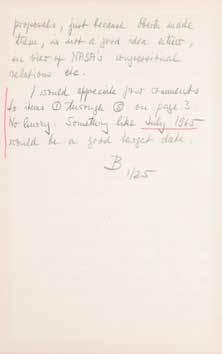 proposals, just because Bosh made
them, is not a good idea either,
in view of NASA's congressional
relations etc.
I would appreciate your comments
to items ① through ⑥ on page 3.
No hurry. Something like July 1965
would be a good target date.
B
1/25